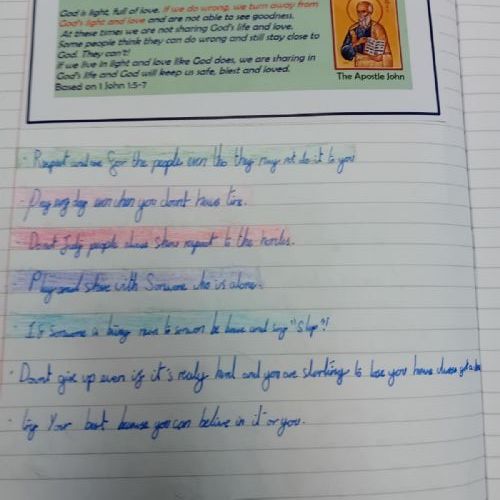 God is light, full of love. If we do wrong, we turn away from
God's light and love and are not able to see goodness.
At these times we are not sharing God's life and love.
Some people think they can do wrong and still stay close to
God. They can't!
If we live in light and love like God does, we are sharing in
God's life and God will keep us safe, blest and loved.
Based on 1 John 1:5-7
The Apostle John
· Respect and care for the people even tho they may not do it to you
· Pray every day even when you dount have time.
· Dount Judg people show respect to the
· Play and share with Someone who is alone.
· If Someone is being to be brave and say "Stop"!
· Dount give up even if it's really hard and you are starting to lose you have
· try Your best because you can belive in it or you.